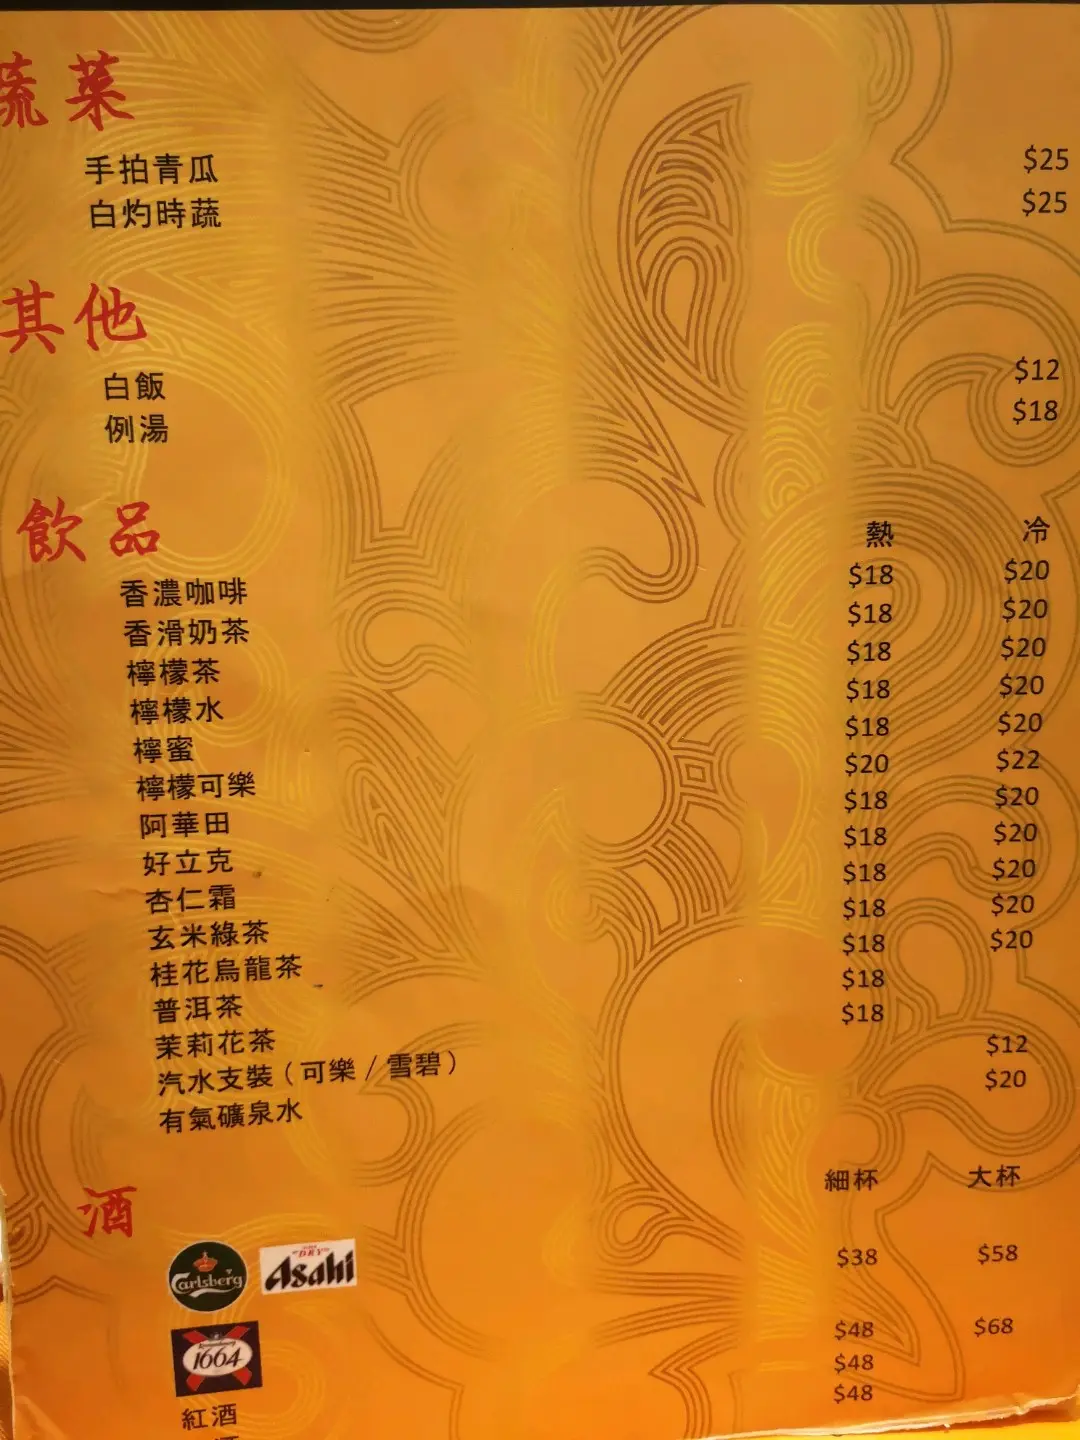 蔬菜
手拍青瓜 $25
白灼時蔬 $25
其他
白飯 $12
例湯 $18
飲品 熱 冷
香濃咖啡 $18 $20
香滑奶茶 $18 $20
檸檬茶 $18 $20
檸檬水 $18 $20
檸蜜 $18 $20
檸檬可樂 $20 $22
阿華田 $18 $20
好立克 $18 $20
杏仁霜 $18 $20
玄米綠茶 $18 $20
桂花烏龍茶 $18 $20
普洱茶 $18
茉莉花茶 $18
汽水支裝（可樂/雪碧） $12
有氣礦泉水 $20
酒 細杯 大杯
Carlsberg DRY Asahi $38 $58
1664 $48 $68
紅酒 $48
$48